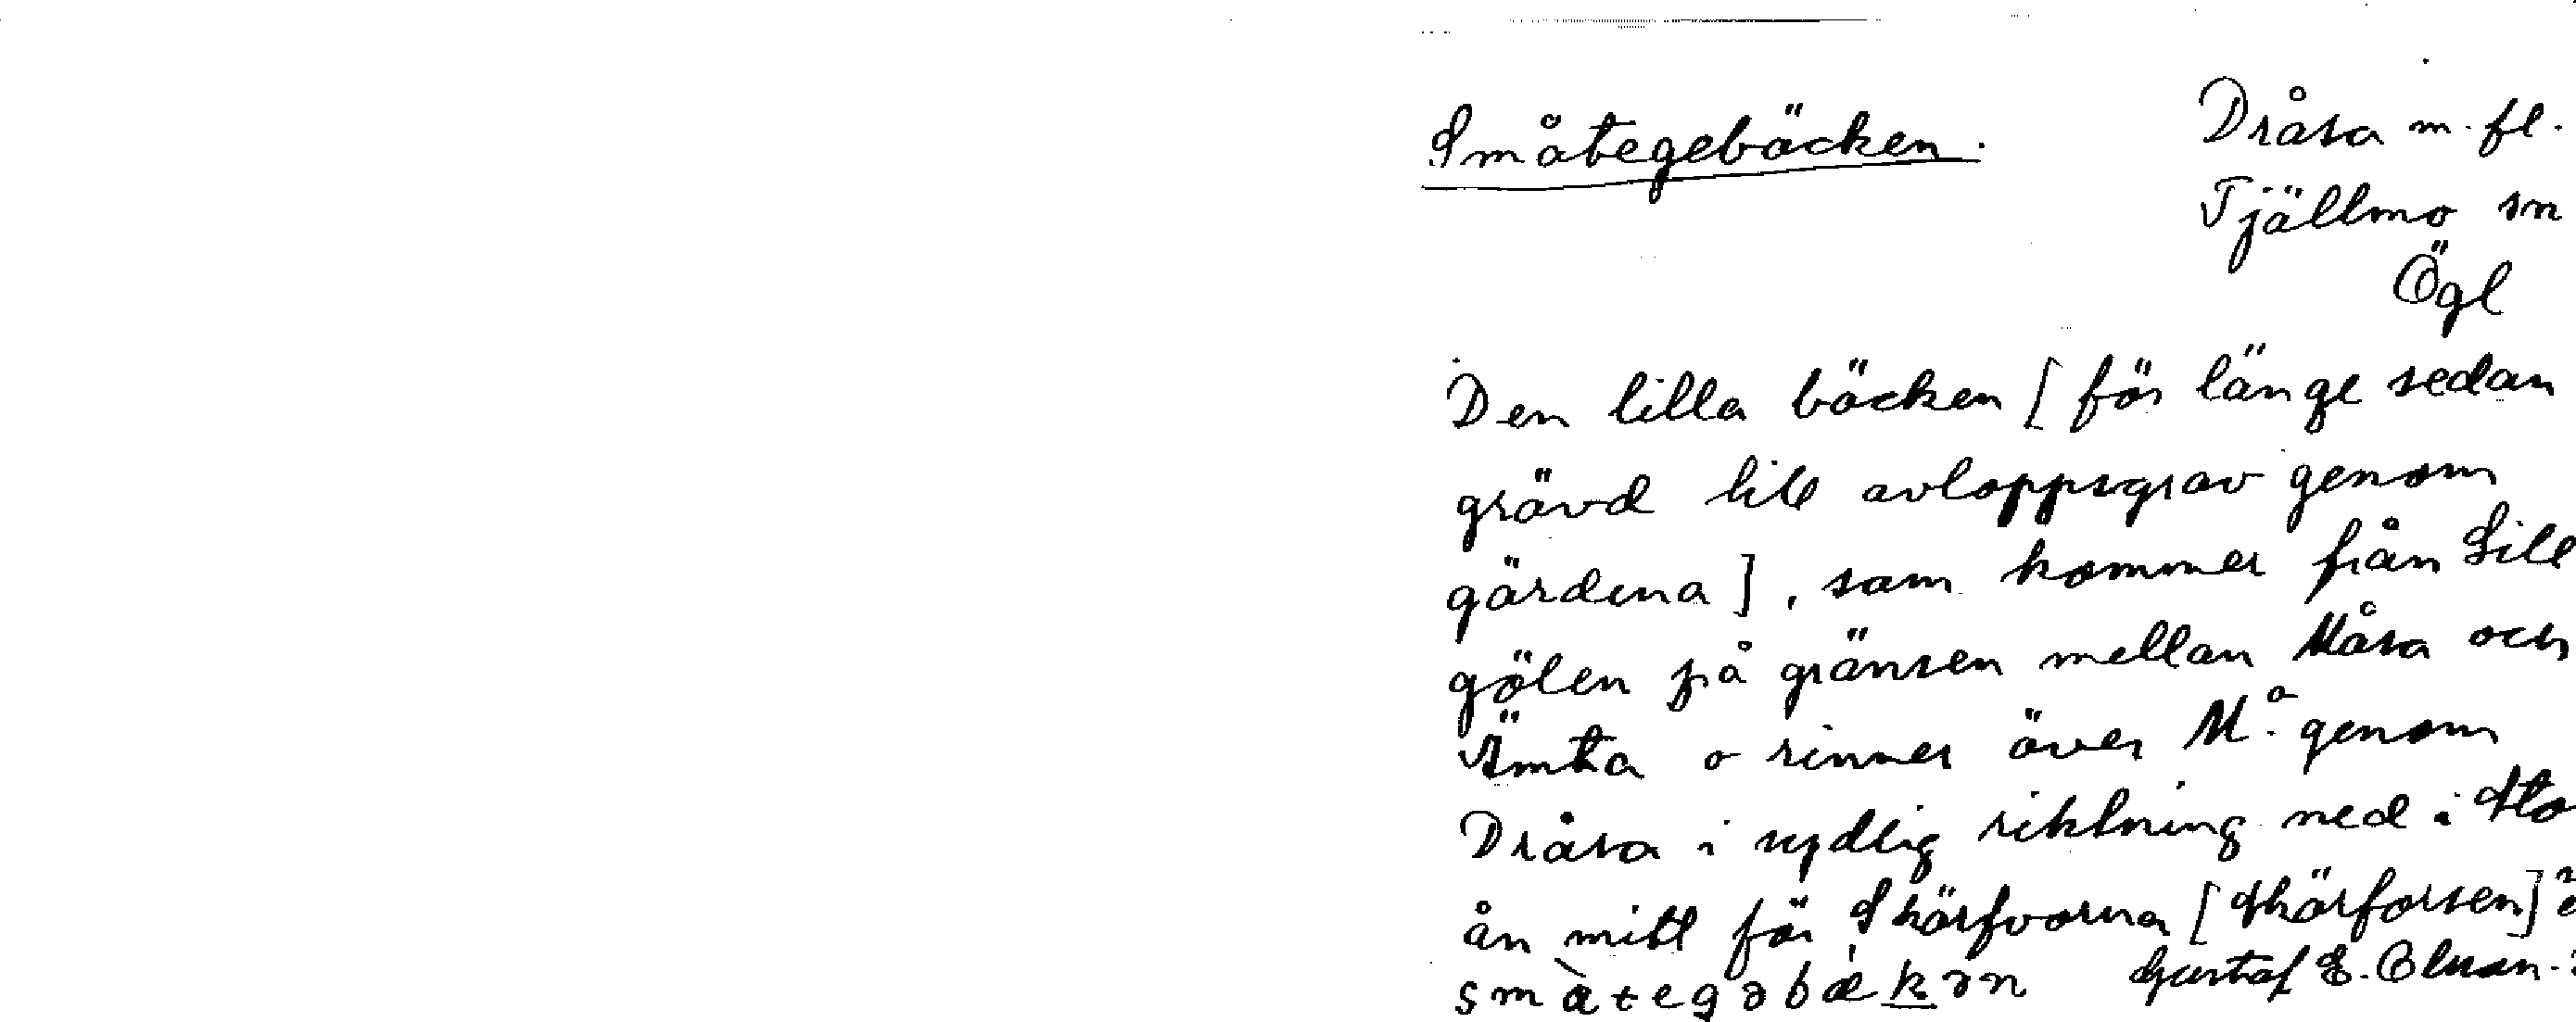 Småtegebäcken.
Dråsa m. fl.
Tjällmo sn
Ögl
Den lilla bäcken [för länge sedan
grävd till avloppsgrav genom
gärdena], som kommer från Lill
gölen på gränsen mellan Måsa och
Ämta o rinner över M:a genom
Dråsa i sydlig riktning ned i Sto
ån mitt för Skärfvorna [Skärforsen]
Gustaf E.